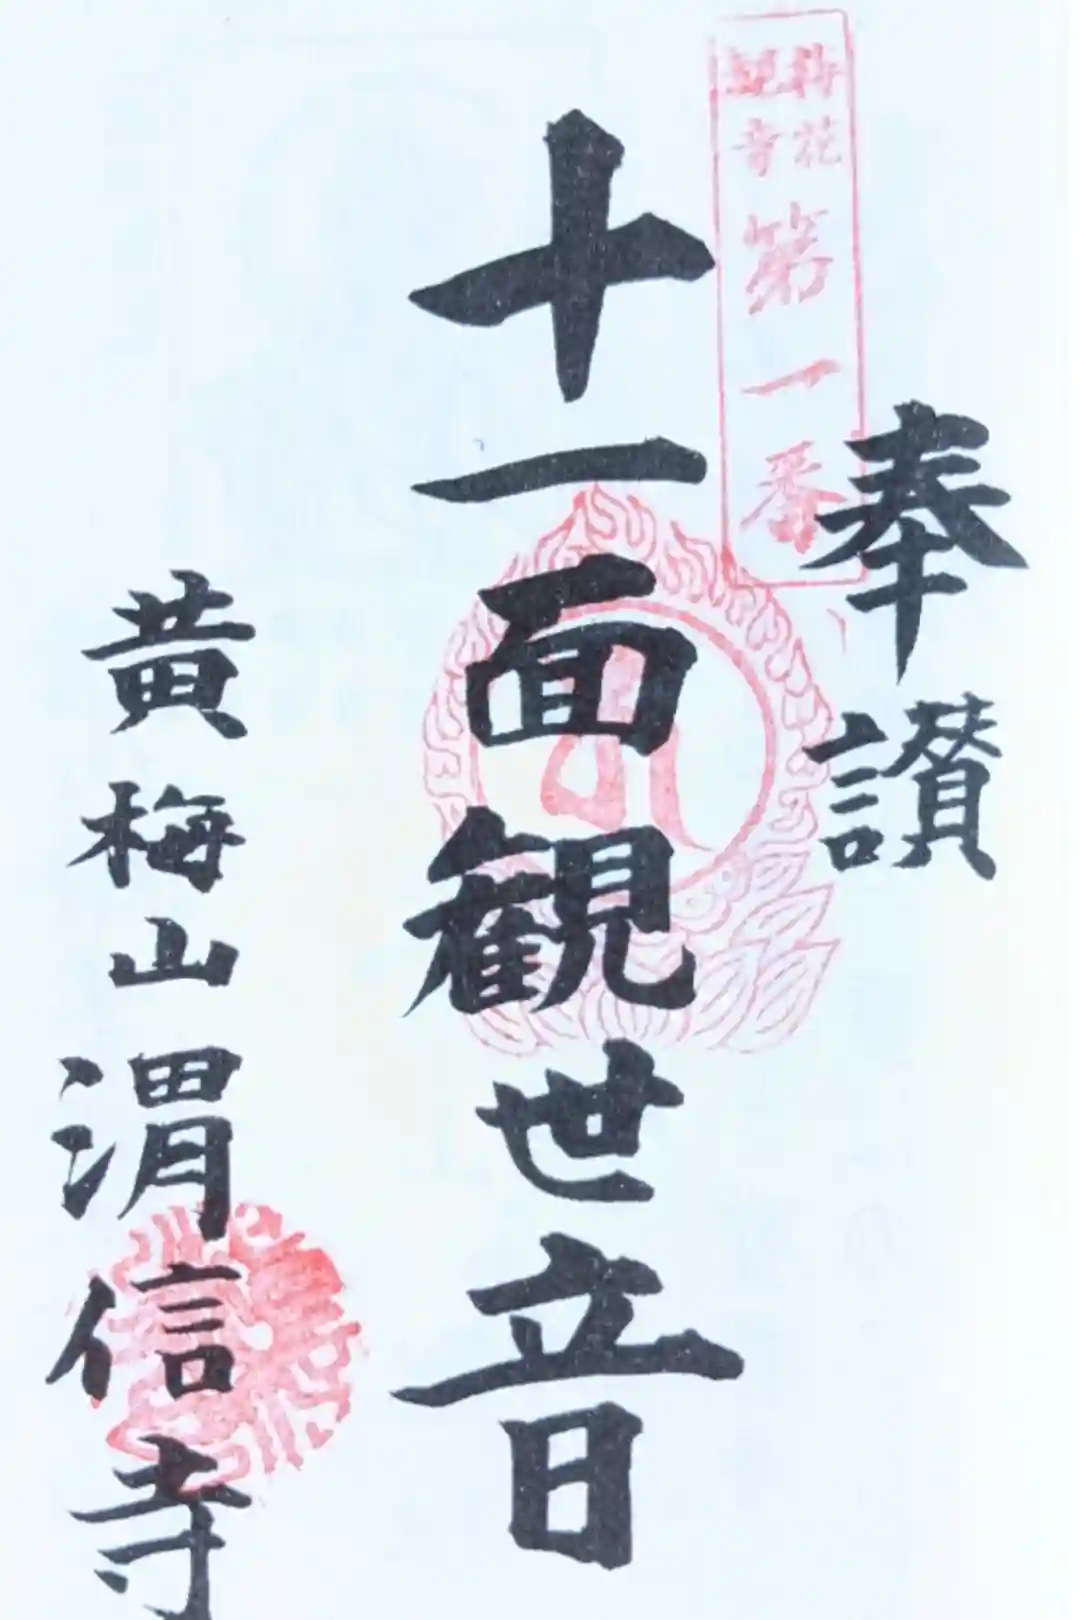 奉讃
花観音第一番
十一面観世音
黄梅山渭信寺